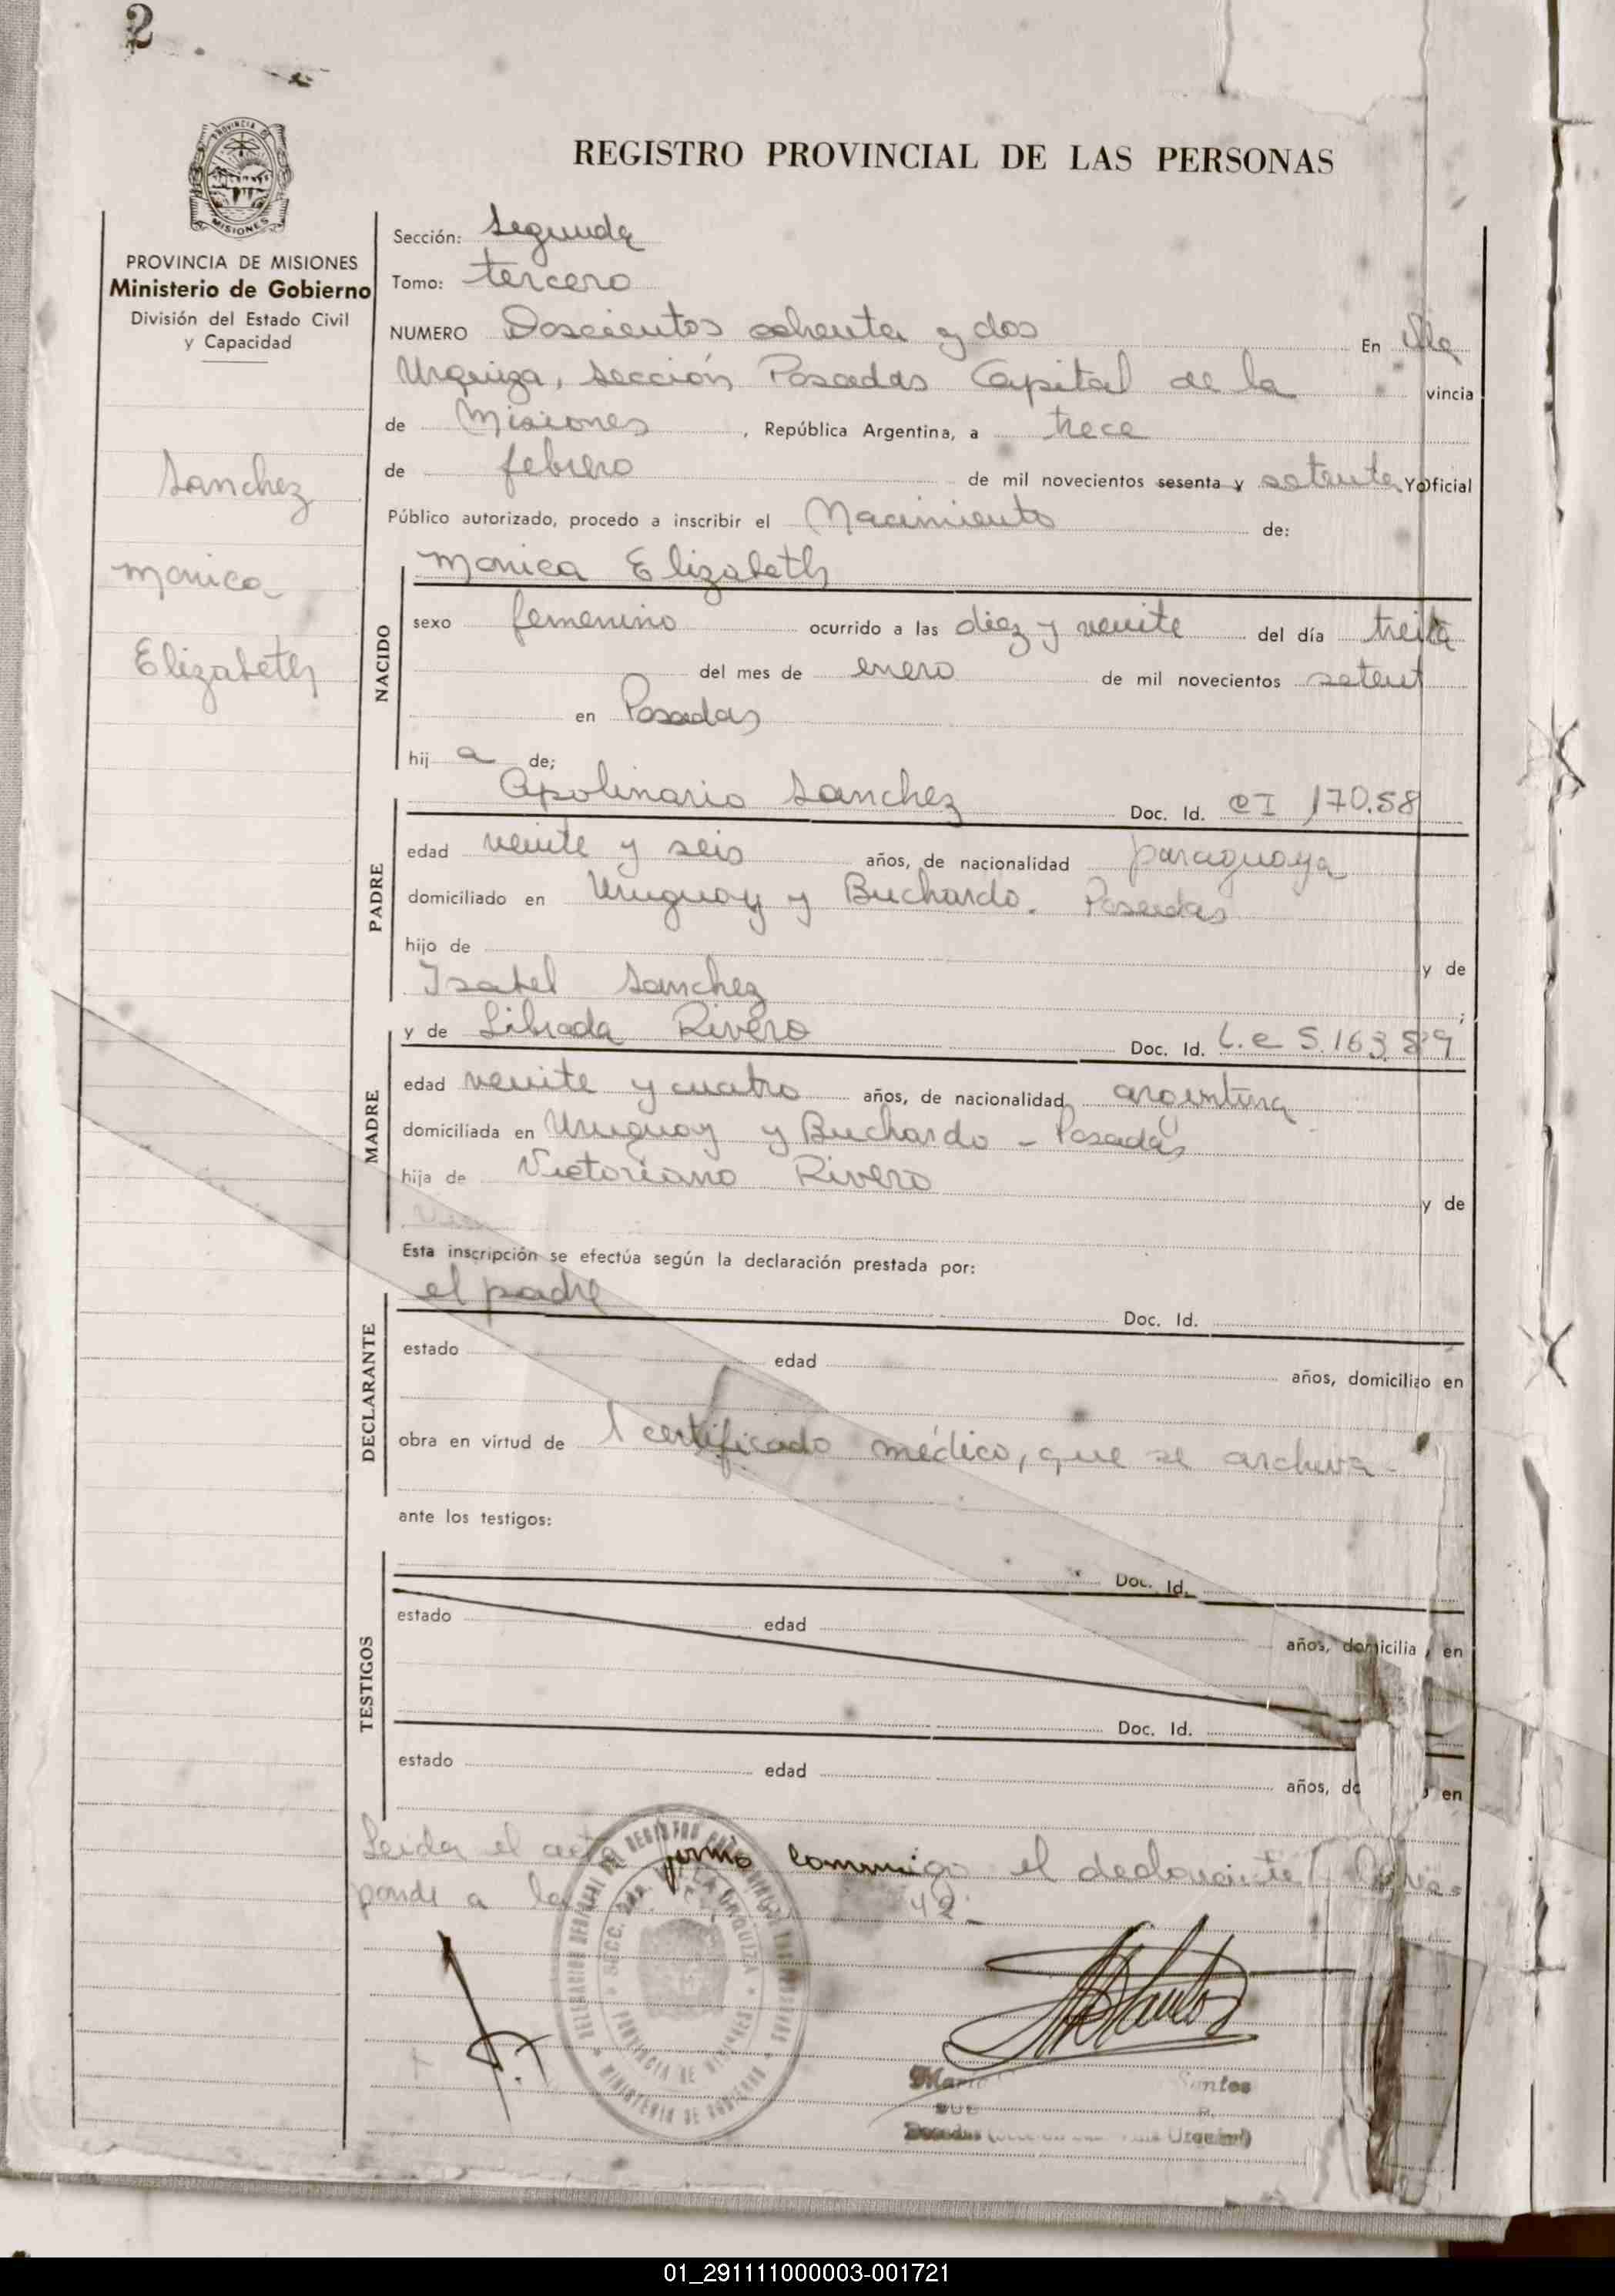 2
REGISTRO PROVINCIAL DE LAS PERSONAS
MISIONES
PROVINCIA DE MISIONES
Ministerio de Gobierno
División del Estado Civil
y Capacidad
Sanchez
Monica
Elizabeth
Sección: Segunda
Tomo: tercero
NUMERO Doscientos ochenta y dos En Vla
Urquiza, sección Posadas Capital de la vincia
de Misiones, República Argentina, a trece
de febrero de mil novecientos sesenta y setenta Yo Oficial
Público autorizado, procedo a inscribir el Nacimiento de:
NACIDO
Monica Elizabeth
sexo femenino ocurrido a las diez y veinte del día treita
del mes de enero de mil novecientos setent
en Posadas
hij a de;
PADRE
Apolinario Sanchez Doc. Id. CI 170.58
edad veinte y seis años, de nacionalidad paraguaya
domiciliado en Uruguay y Buchardo. Posadas
hijo de y de
Isabel Sanchez ;
MADRE
y de Librada Rivero Doc. Id. L.e 5.163.89
edad veinte y cuatro años, de nacionalidad argentina
domiciliada en Uruguay y Buchardo - Posadas
hija de Victoriano Rivero y de
Esta inscripción se efectúa según la declaración prestada por:
DECLARANTE
el padre Doc. Id.
estado edad años, domicilio en
obra en virtud de 1 certificado médico, que se archiva -
ante los testigos:
TESTIGOS
Doc. Id.
estado edad años, domicilia en
Doc. Id.
estado edad años, do en
Leida el acta firma conmigo el declarante
ponde a la 42.-
PROVINCIA DE MISIONES
MINISTERIO DE GOBIERNO
Mario Santos
01_291111000003-001721